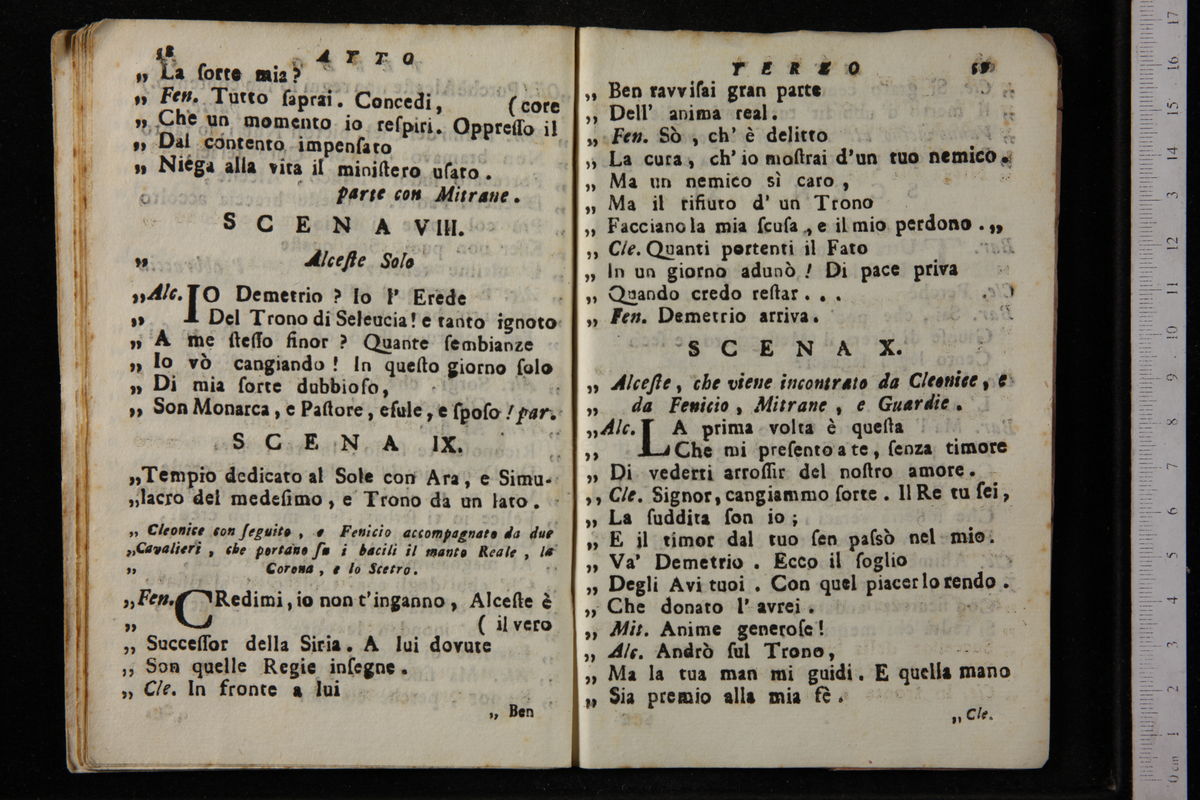 58 ATTO
„ La ſorte mia?
„ Fen. Tutto ſaprai. Concedi, (core
„ Che un momento io reſpiri. Oppreſſo il
„ Dal contento impenſato
„ Niega alla vita il miniſtero uſato.
parte con Mitrane.
SCENA VIII.
„ Alceſte Solo
„Alc. IO Demetrio? Io l' Erede
„ Del Trono di Seleucia! e tanto ignoto
„ A me ſteſſo finor? Quante ſembianze
„ Io vò cangiando! In queſto giorno ſolo
„ Di mia ſorte dubbioſo,
„ Son Monarca, e Paſtore, eſule, e ſpoſo! par.
SCENA IX.
„Tempio dedicato al Sole con Ara, e Simu-
„lacro del medeſimo, e Trono da un lato.
„ Cleonice con ſeguito, e Fenicio accompagnato da due
„Cavalieri, che portano ſu i bacili il manto Reale, la
„ Corona, e lo Scetro.
„Fen. CRedimi, io non t'inganno, Alceſte è
„ ( il vero
„ Succeſſor della Siria. A lui dovute
„ Son quelle Regie inſegne.
„ Cle. In fronte a lui
„ Ben
TERZO 59
„ Ben ravviſai gran parte
„ Dell' anima real.
„ Fen. Sò, ch' è delitto
„ La cura, ch' io moſtrai d'un tuo nemico.
„ Ma un nemico sì caro,
„ Ma il rifiuto d' un Trono
„ Facciano la mia ſcuſa, e il mio perdono. „
„ Cle. Quanti portenti il Fato
„ In un giorno adunò! Di pace priva
„ Quando credo reſtar...
„ Fen. Demetrio arriva.
SCENA X.
„ Alceſte, che viene incontrato da Cleonice, e
„ da Fenicio, Mitrane, e Guardie.
„Alc. LA prima volta è queſta
„ Che mi preſento a te, ſenza timore
„ Di vederti arroſſir del noſtro amore.
„ Cle. Signor, cangiammo ſorte. Il Re tu ſei,
„ La ſuddita ſon io;
„ E il timor dal tuo ſen paſsò nel mio.
„ Va' Demetrio. Ecco il ſoglio
„ Degli Avi tuoi. Con quel piacer lo rendo.
„ Che donato l' avrei.
„ Mit. Anime generoſe!
„ Alc. Andrò ſul Trono,
„ Ma la tua man mi guidi. E quella mano
„ Sia premio alla mia fè.
„ Cle.
0 cm 1 2 3 4 5 6 7 8 9 10 11 12 13 14 15 16 17